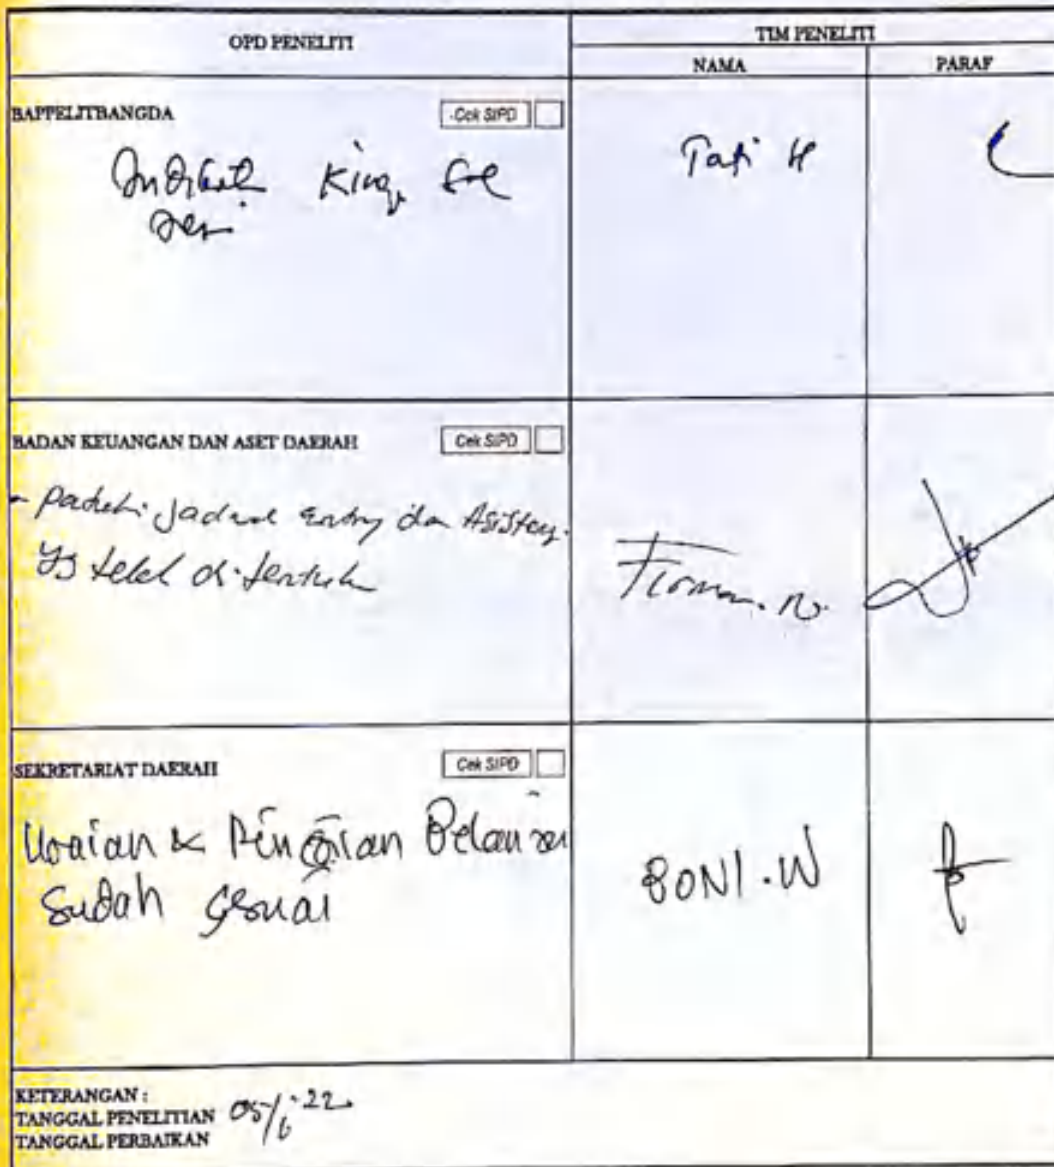 OPD PENELITI
TIM PENELITI
NAMA
PARAF
BAPPELITBANGDA
Cek SIPD
Tati H
BADAN KEUANGAN DAN ASET DAERAH
Cek SIPD
- patuhi jadwal entry dan Asistensi
yg telah di tentukan
Firman. N.
SEKRETARIAT DAERAH
Cek SIPD
Uraian & Rincian Belanja
Sudah Sesuai
BONI.W
KETERANGAN :
TANGGAL PENELITIAN 05/6-22
TANGGAL PERBAIKAN